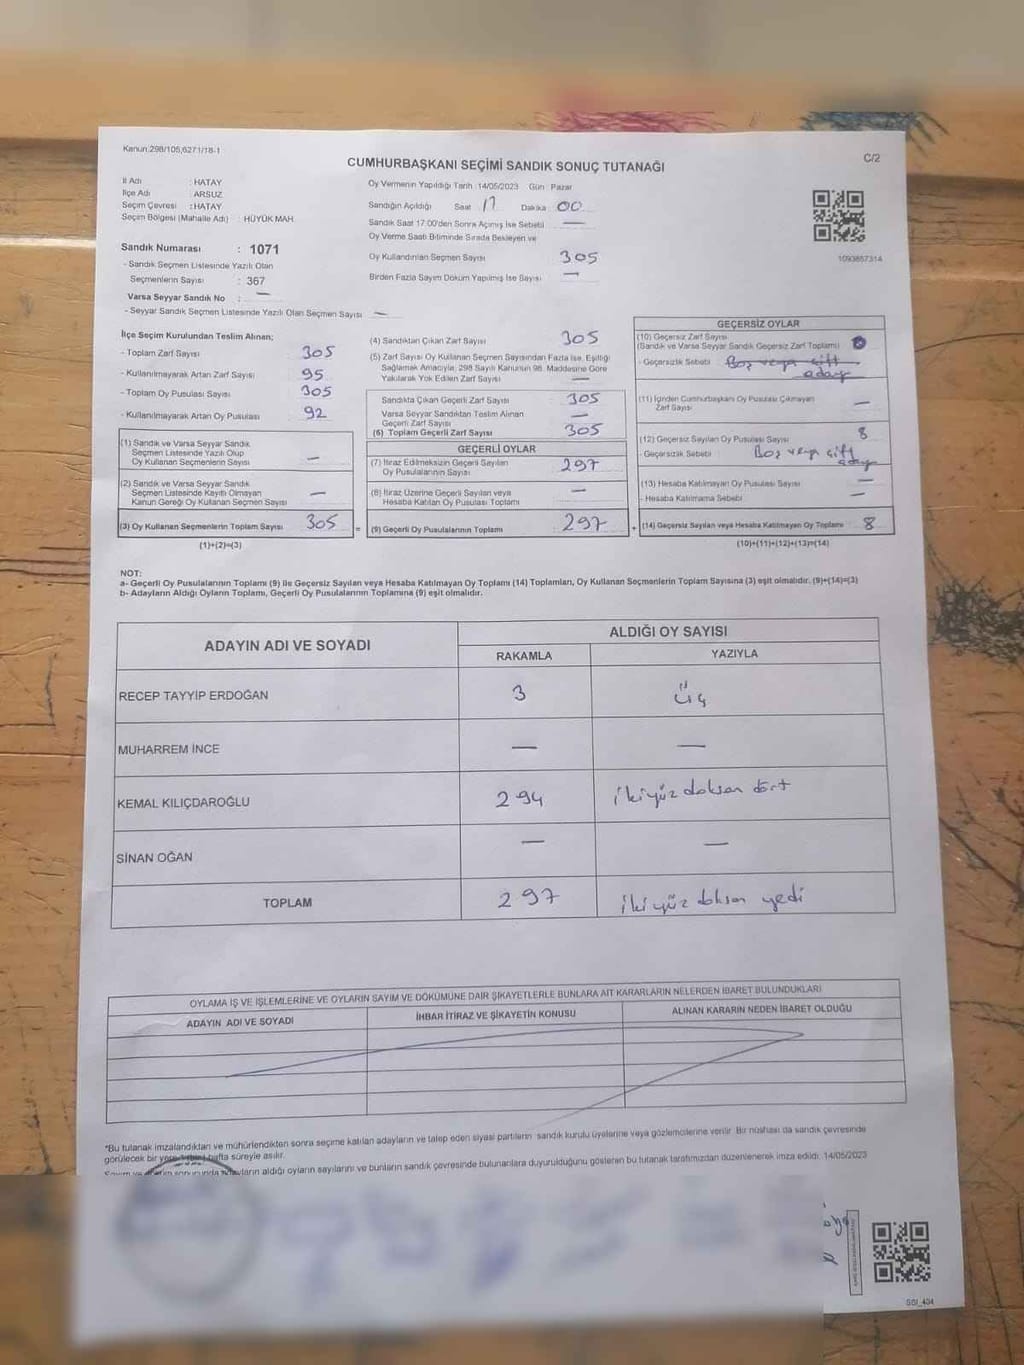 Kanun:298/105,6271/18-1
C/2
CUMHURBAŞKANI SEÇİMİ SANDIK SONUÇ TUTANAĞI
İl Adı : HATAY
İlçe Adı : ARSUZ
Seçim Çevresi : HATAY
Seçim Bölgesi (Mahalle Adı) : HÜYÜK MAH.
Sandık Numarası : 1071
- Sandık Seçmen Listesinde Yazılı Olan
Seçmenlerin Sayısı : 367
Varsa Seyyar Sandık No : —
- Seyyar Sandık Seçmen Listesinde Yazılı Olan Seçmen Sayısı —
Oy Vermenin Yapıldığı Tarih :14/05/2023 Gün : Pazar
Sandığın Açıldığı Saat 17 Dakika 00
Sandık Saat 17.00'den Sonra Açılmış İse Sebebi —
Oy Verme Saati Bitiminde Sırada Bekleyen ve
Oy Kullandırılan Seçmen Sayısı 305
Birden Fazla Sayım Döküm Yapılmış İse Sayısı —
1093857314
İlçe Seçim Kurulundan Teslim Alınan;
- Toplam Zarf Sayısı 305
- Kullanılmayarak Artan Zarf Sayısı 95
- Toplam Oy Pusulası Sayısı 305
- Kullanılmayarak Artan Oy Pusulası 92
(1) Sandık ve Varsa Seyyar Sandık
Seçmen Listesinde Yazılı Olup
Oy Kullanan Seçmenlerin Sayısı —
(2) Sandık ve Varsa Seyyar Sandık
Seçmen Listesinde Kayıtlı Olmayan
Kanun Gereği Oy Kullanan Seçmen Sayısı —
(3) Oy Kullanan Seçmenlerin Toplam Sayısı 305 =
(1)+(2)=(3)
(4) Sandıktan Çıkan Zarf Sayısı 305
(5) Zarf Sayısı Oy Kullanan Seçmen Sayısından Fazla İse, Eşitliği
Sağlamak Amacıyla, 298 Sayılı Kanunun 98. Maddesine Göre
Yakılarak Yok Edilen Zarf Sayısı —
Sandıkta Çıkan Geçerli Zarf Sayısı 305
Varsa Seyyar Sandıktan Teslim Alınan
Geçerli Zarf Sayısı —
(6) Toplam Geçerli Zarf Sayısı 305
GEÇERLİ OYLAR
(7) İtiraz Edilmeksizin Geçerli Sayılan
Oy Pusulalarının Sayısı 297
(8) İtiraz Üzerine Geçerli Sayılan veya
Hesaba Katılan Oy Pusulası Toplamı —
(9) Geçerli Oy Pusulalarının Toplamı 297 +
GEÇERSİZ OYLAR
(10) Geçersiz Zarf Sayısı
(Sandık ve Varsa Seyyar Sandık Geçersiz Zarf Toplamı)
- Geçersizlik Sebebi Boş veya çift
aday
(11) İçinden Cumhurbaşkanı Oy Pusulası Çıkmayan
Zarf Sayısı —
(12) Geçersiz Sayılan Oy Pusulası Sayısı 8
- Geçersizlik Sebebi Boş veya çift
aday
(13) Hesaba Katılmayan Oy Pusulası Sayısı —
- Hesaba Katılmama Sebebi —
(14) Geçersiz Sayılan veya Hesaba Katılmayan Oy Toplamı 8
(10)+(11)+(12)+(13)=(14)
NOT:
a- Geçerli Oy Pusulalarının Toplamı (9) ile Geçersiz Sayılan veya Hesaba Katılmayan Oy Toplamı (14) Toplamları, Oy Kullanan Seçmenlerin Toplam Sayısına (3) eşit olmalıdır. (9)+(14)=(3)
b- Adayların Aldığı Oyların Toplamı, Geçerli Oy Pusulalarının Toplamına (9) eşit olmalıdır.
ADAYIN ADI VE SOYADI
ALDIĞI OY SAYISI
RAKAMLA YAZIYLA
RECEP TAYYİP ERDOĞAN 3 üç
MUHARREM İNCE — —
KEMAL KILIÇDAROĞLU 294 ikiyüz doksan dört
SİNAN OĞAN — —
TOPLAM 297 ikiyüz doksan yedi
OYLAMA İŞ VE İŞLEMLERİNE VE OYLARIN SAYIM VE DÖKÜMÜNE DAİR ŞİKAYETLERLE BUNLARA AİT KARARLARIN NELERDEN İBARET BULUNDUKLARI
ADAYIN ADI VE SOYADI İHBAR İTİRAZ VE ŞİKAYETİN KONUSU ALINAN KARARIN NEDEN İBARET OLDUĞU
*Bu tutanak imzalandıktan ve mühürlendikten sonra seçime katılan adayların ve talep eden siyasi partilerin sandık kurulu üyelerine veya gözlemcilerine verilir. Bir nüshası da sandık çevresinde
görülecek bir yere hafta süreyle asılır.
Sayım ve sonucunda adayların aldığı oyların sayılarını ve bunların sandık çevresinde bulunanlara duyurulduğunu gösteren bu tutanak tarafımızdan düzenlenerek imza edildi. 14/05/2023